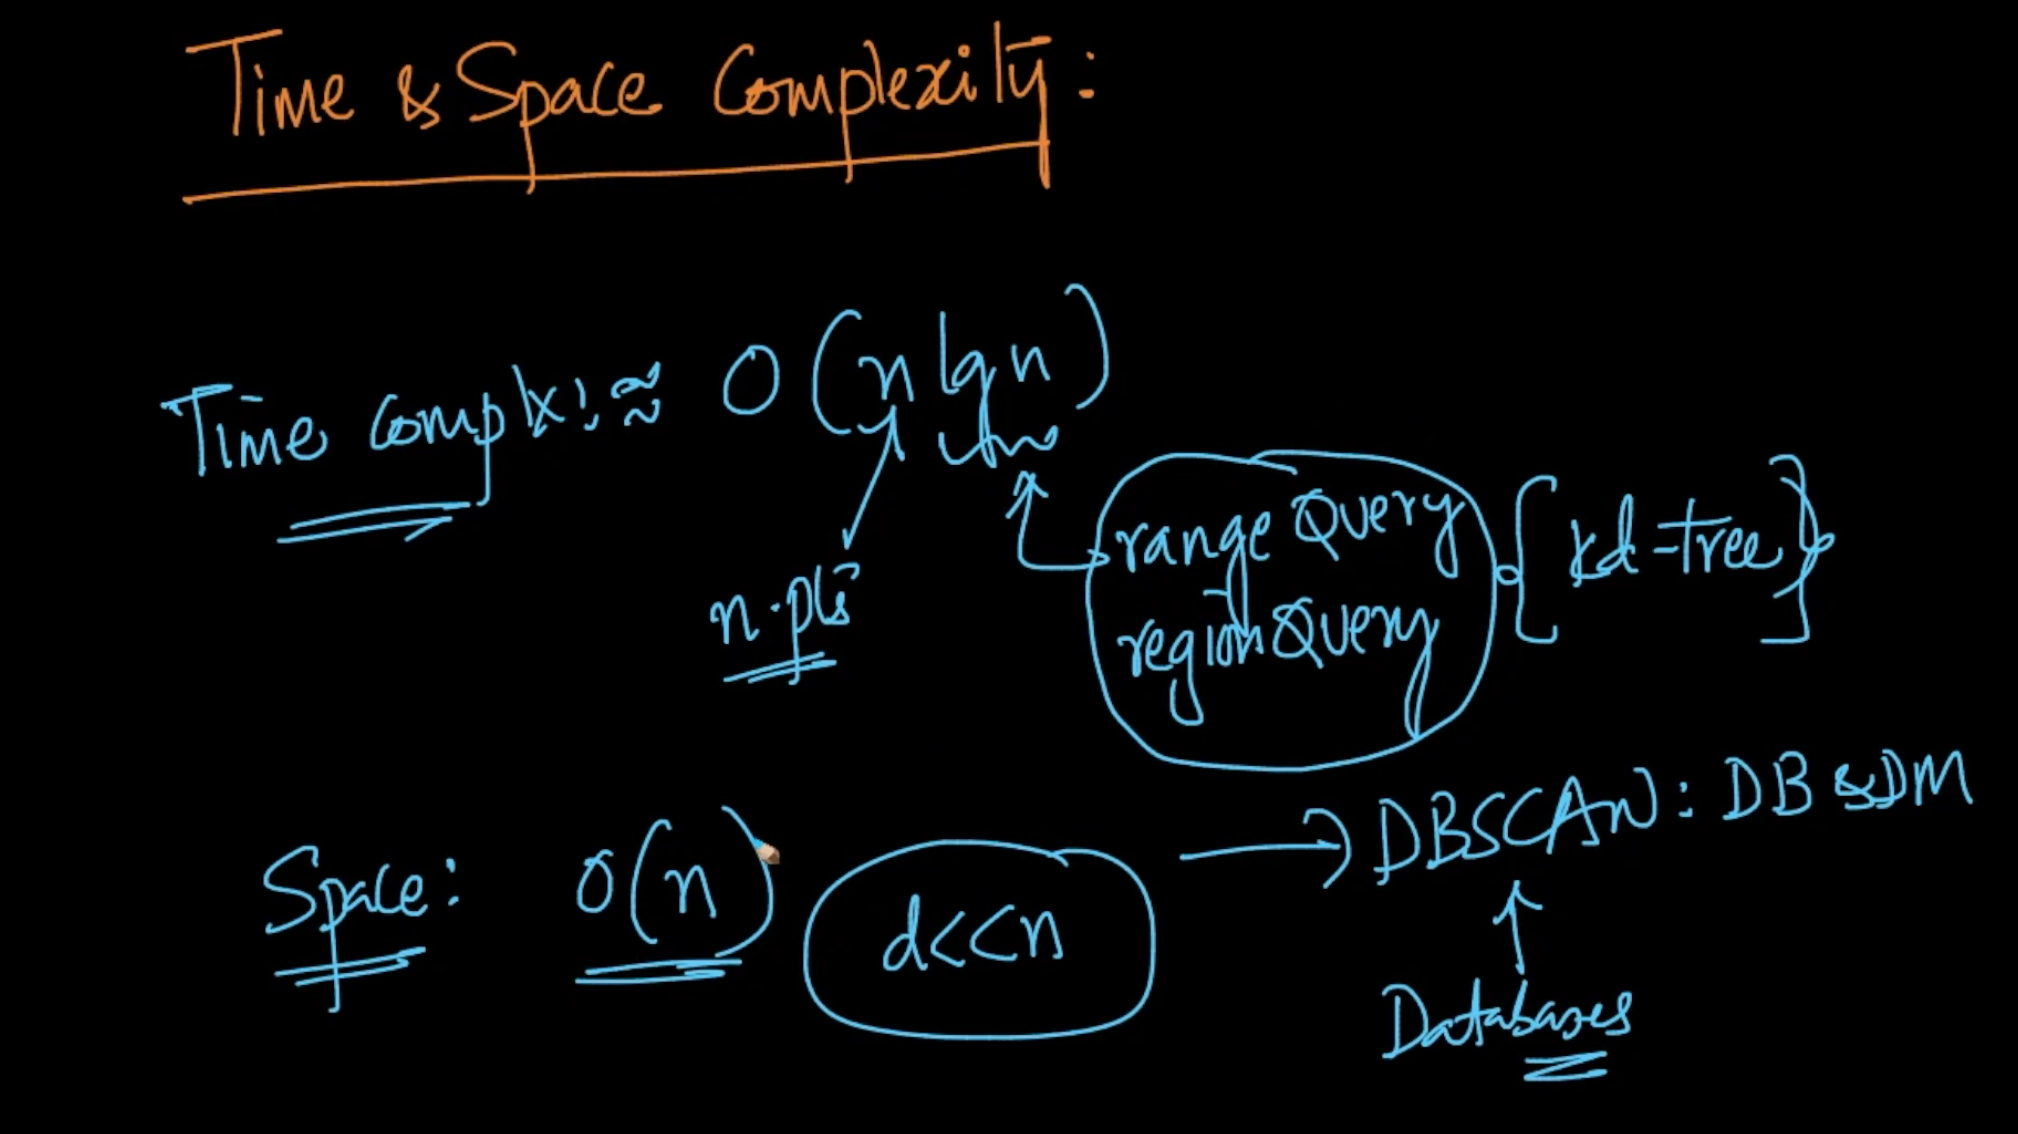 Time & Space Complexity:
Time complx: ≈ O(n lg n)
n pts
range Query
region Query
[kd-tree]
Space: O(n)
d<<n
→ DBSCAN: DB & DM
Databases